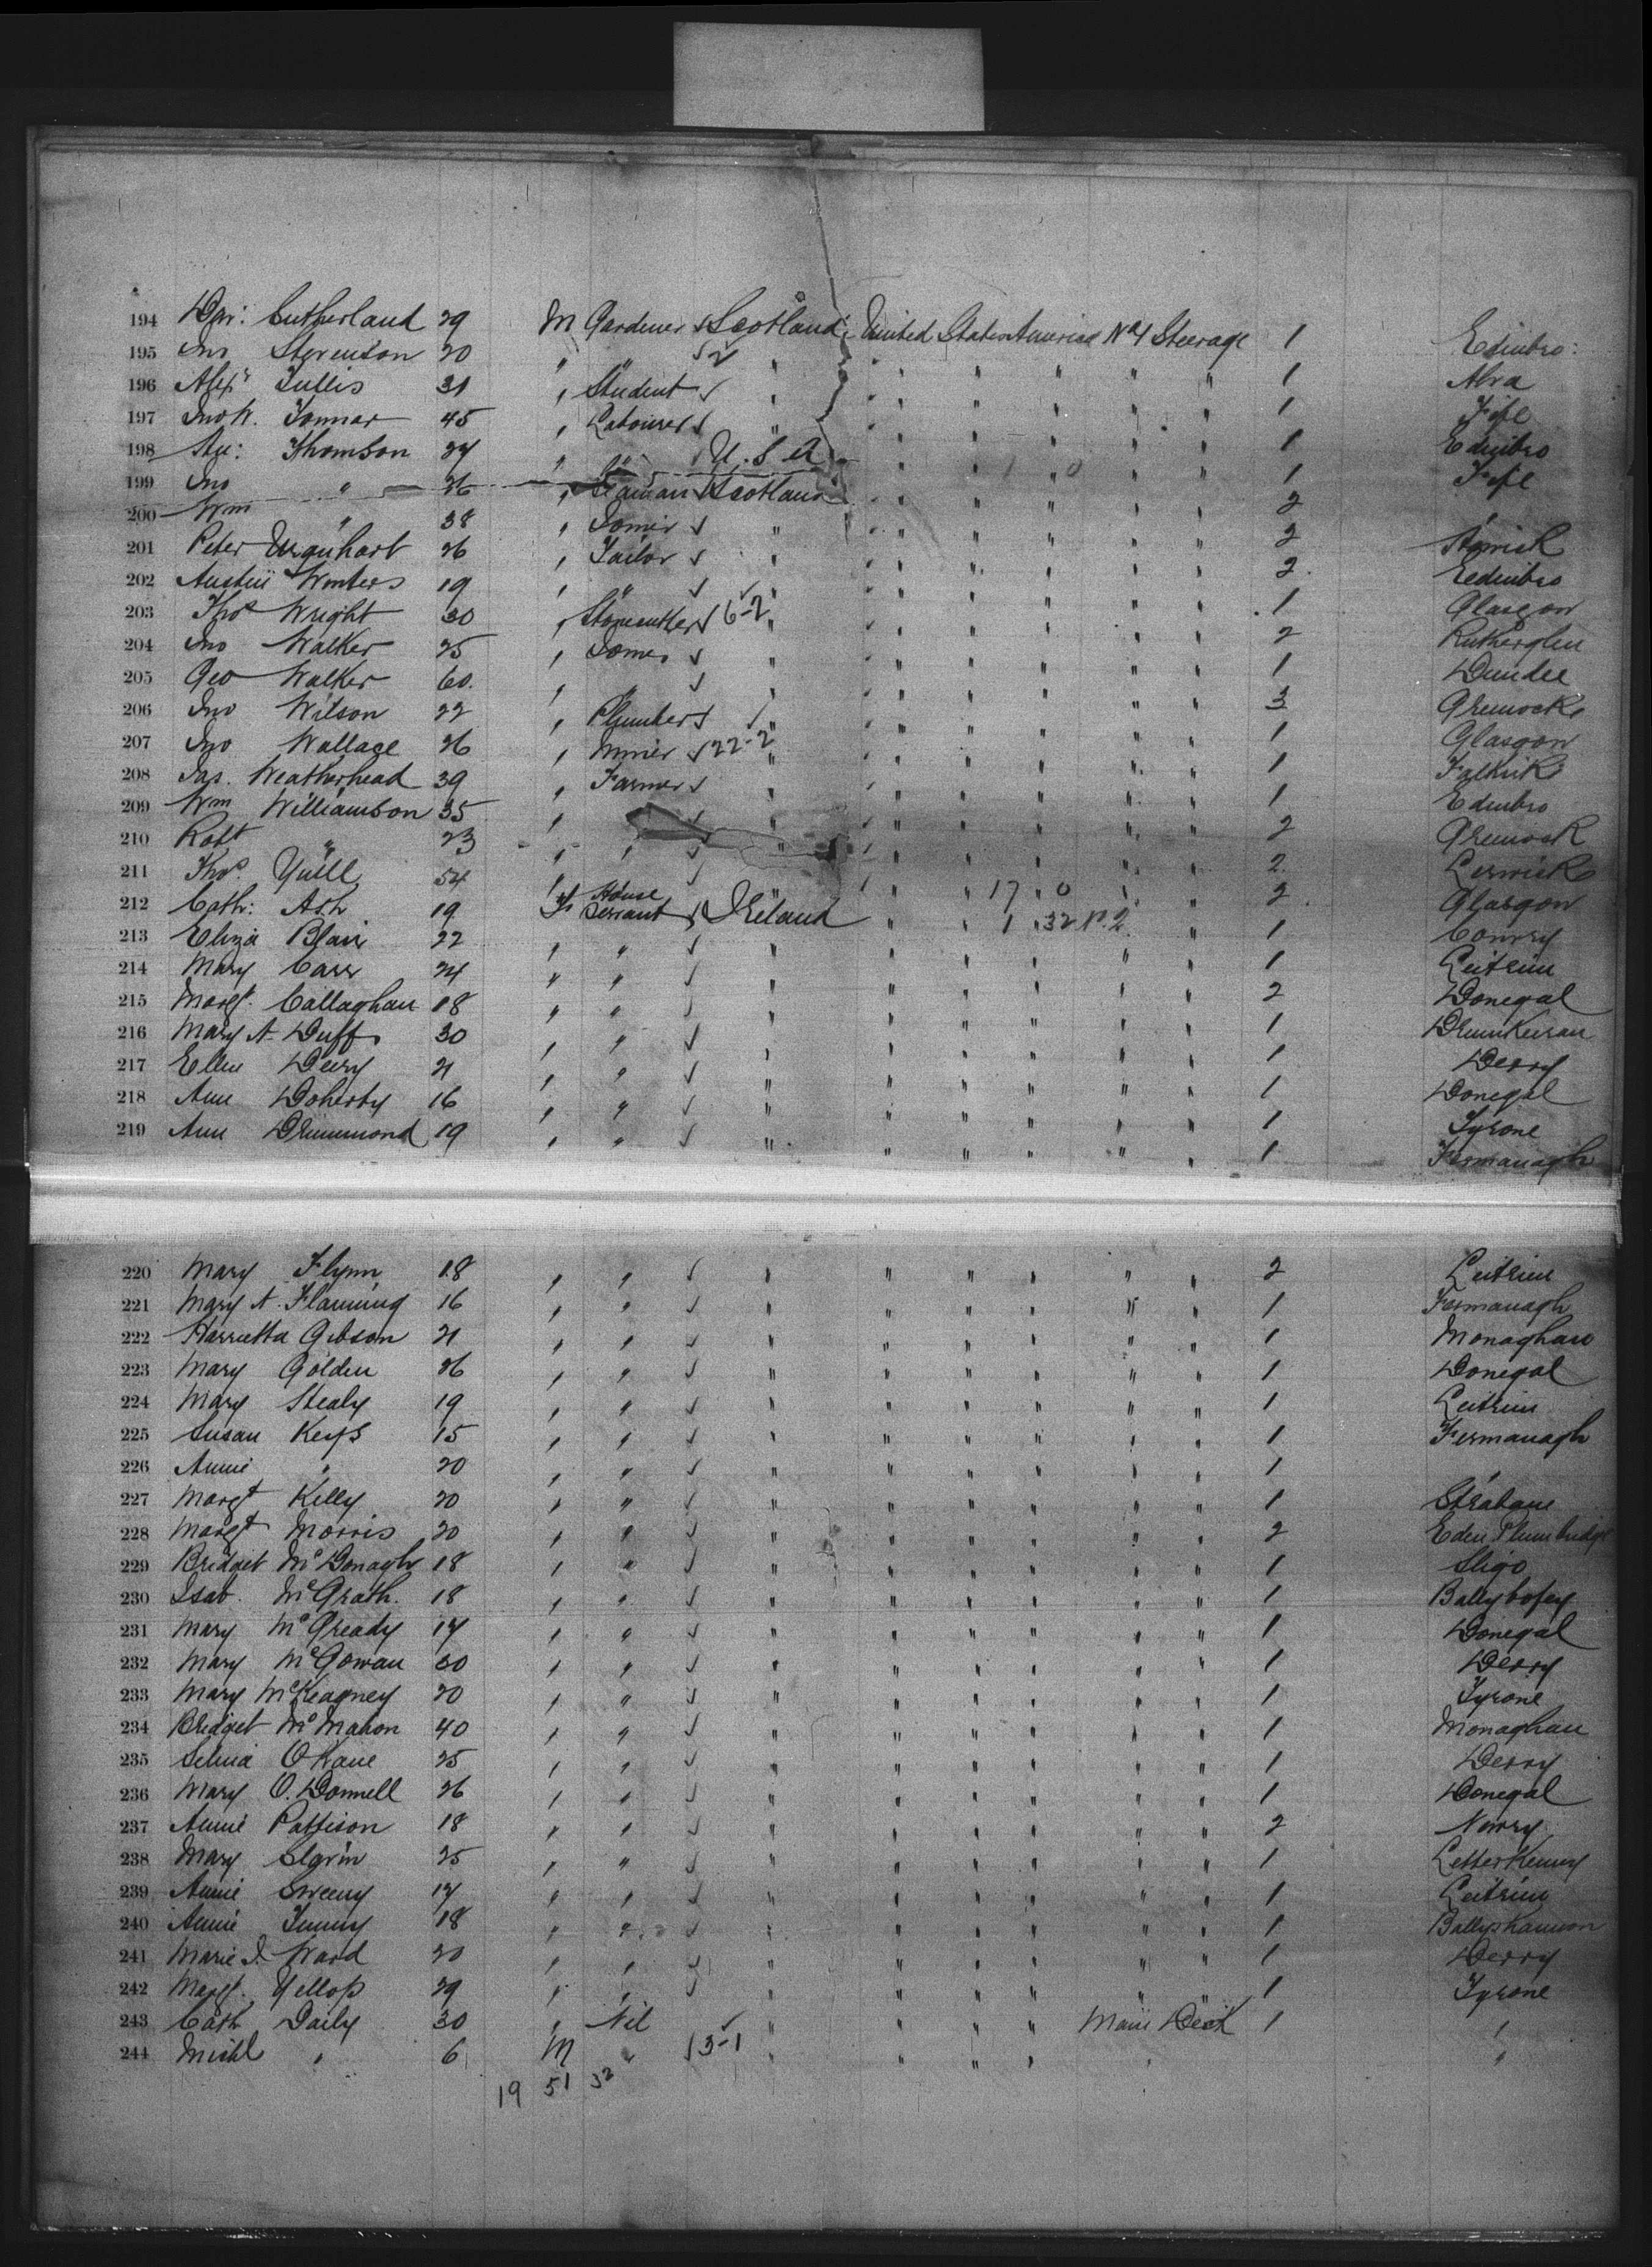 194 Dav: Sutherland 29 M Gardener √ Scotland United States America No 4 Steerage 1 Edinbro:
195 Jno Stevenson 20 " " √ 2 " " " " " " 1 Alva
196 Alexr Tullis 31 " Student √ " " " " " " 1 Fife
197 Jno W. Tonnar 45 " Labourer √ " " " " " " 1 Edinbro
198 Thomson 27 " " √ U.S.A. " " " " " 1 Fife
199 Jno " 26 " Seaman √ Scotland " " " " " 2 "
200 Wm " 38 " Joiner √ " " " " " " 2
201 Peter Urquhart 26 " Tailor √ " " " " " " 2 Edinbro
202 Austin Winters 19 " " √ " " " " " " 1 Glasgow
203 Thos Wright 30 " Stonecutter √ 6-2 " " " " " " 2 Rutherglen
204 Jno Walker 25 " Joiner √ " " " " " " 1 Dundee
205 Geo Walker 60. " " √ " " " " " " 3 Greenock
206 Jno Wilson 22 " Plumber √ " " " " " " 1 Glasgow
207 Jno Wallace 26 " Miner √ 22-2 " " " " " " 1 Falkirk
208 Jas. Weatherhead 39 " Farmer √ " " " " " " 1 Edinbro
209 Wm Williamson 35 " √ " " " " " " 2 Greenock
210 Robt " 23 " " √ " " " " " " 2 Lerwick
211 Thos. Yuill 54 " √ " " " 17 0 " " 2 Glasgow
212 Cath: Ash 19 F House Servant √ Ireland " 1 32 No. 2 " 1 Convoy
213 Eliza Blair 22 " " √ " " " " " " 1 Leitrim
214 Mary Carr 24 " " √ " " " " " " 2 Donegal
215 Margt. Callaghan 18 " " √ " " " " " " 1 Drumkeeran
216 Mary A. Duff 30 " " √ " " " " " " 1 Derry
217 Ellen Deery 21 " " √ " " " " " " 1 Donegal
218 Ann Doherty 16 " " √ " " " " " " 1 Tyrone
219 Ann Drummond 19 " " √ " " " " " " 1 Fermanagh
220 Mary Flynn 18 " " √ " " " " " " 2 Leitrim
221 Mary A. Flaming 16 " " √ " " " " " " 1 Fermanagh
222 Harrietta Gibson 21 " " √ " " " " " " 1 Monaghan
223 Mary Golden 26 " " √ " " " " " " 1 Donegal
224 Mary Healy 19 " " √ " " " " " " 1 Leitrim
225 Susan Keys 15 " " √ " " " " " " 1 Fermanagh
226 Annie " 20 " " √ " " " " " " 1 "
227 Margt Kelly 20 " " √ " " " " " " 1 Strabane
228 Margt Morris 20 " " √ " " " " " " 2 Eden Plumbridge
229 Bridget McDonagh 18 " " √ " " " " " " 1 Sligo
230 Isab. McGrath. 18 " " √ " " " " " " 1 Ballybofey
231 Mary McGready 17 " " √ " " " " " " 1 Donegal
232 Mary McGowan 30 " " √ " " " " " " 1 Derry
233 Mary McKeagney 20 " " √ " " " " " " 1 Tyrone
234 Bridget McMahon 40 " " √ " " " " " " 1 Monaghan
235 Selina O'Kane 25 " " √ " " " " " " 1 Derry
236 Mary O. Donnell 26 " " √ " " " " " " 1 Donegal
237 Annie Pattison 18 " " √ " " " " " " 2 Newry
238 Mary Slavin 25 " " √ " " " " " " 1 Letterkenny
239 Annie Sweeny 17 " " √ " " " " " " 1 Leitrim
240 Annie Timny 18 " " √ " " " " " " 1 Ballyshannon
241 Marie J. Ward 20 " " √ " " " " " " 1 Derry
242 Margt. Yellop 29 " " √ " " " " " " 1 Tyrone
243 Cath Daily 30 " Nil √ " " " " Main Deck 1 "
244 Michl " 6 M " √ 3-1 " " " " " "
19 51 32